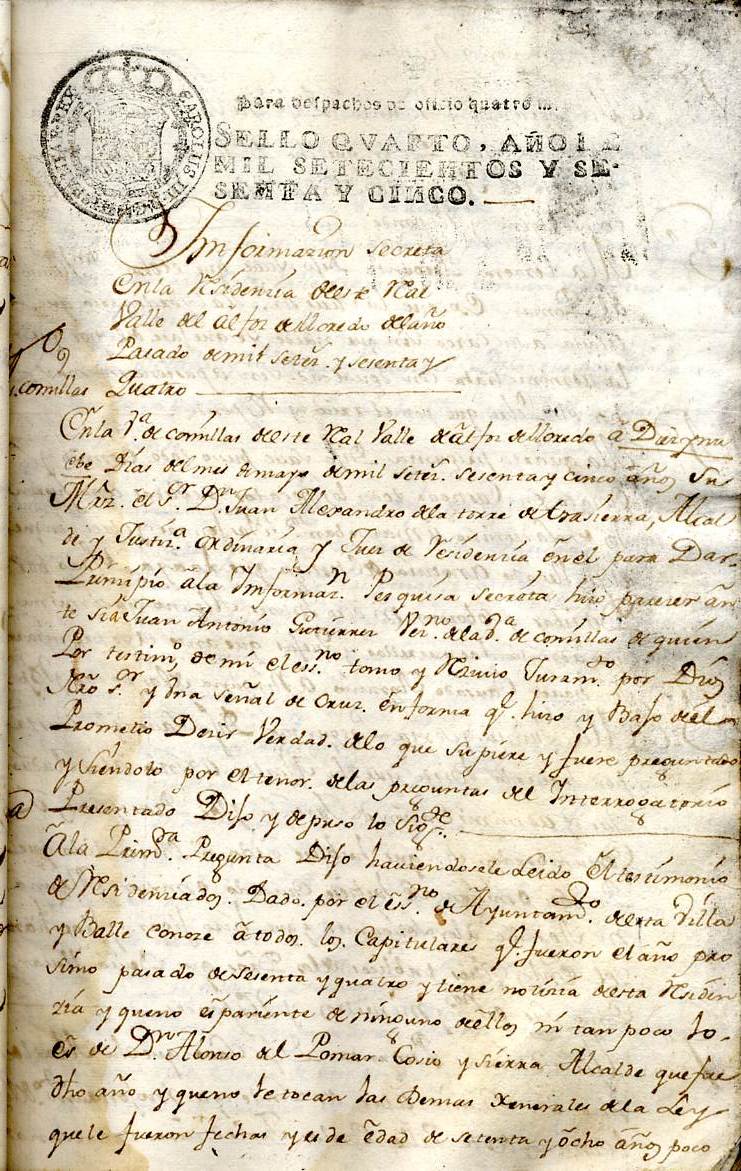 CAROLUS III
para despachos de oficio quatro
SELLO QVARTO, AÑO DE
MIL SETECIENTOS Y SE-
SENTA Y CINCO.
Informazion secreta
En la Residenzia de este Real
Valle del alfoz de lloredo del año
Pasado de mil setes. y sesenta y
Quatro
Comillas
En la Va. de comillas de este Real Valle de alfoz de lloredo â Diez y nu
ebe Dias del mes de mayo de mil setes. sesenta y cinco años Su
Mrz. el Sr. Dn. Juan Alexandro de la torre de la sierra, Alcal
de y Justiza. ordinaria y Juez de Residenzia en el para Dar
Prinzipio â la Informazn. Pesquisa secreta hizo parezer an
te si â Juan Antonio Gutierrez Vezno. de la dha. de comillas de quien
Por testimo. de mi el essno. tomo y Rezivio Juramto. por Dios
Nro sr. y una señal de cruz. en forma q. hizo y Bajo de el
Prometio Dezir Verdad. de lo que supiere y fuere preguntado
y siendolo por el tenor. de las preguntas del Interrogatorio
Presentado Dijo y depuso lo Sigte.
A la Primra. Pregunta Dijo haviendosele Leido El testimonio
de Residenziados. Dado. por el essno. de Ayuntamto. de esta Villa
y Balle conoze â todos. los. Capitulares q. fueron el año pro
simo pasado de sesenta y quatro y tiene notizia de esta Residen
zia y que no es pariente de ninguno de ellos ni tan poco lo
es de Dn. Alonso del Pomar Cosio y sierra Alcalde que fue
dho año y que no le tocan las Demas Xenerales de la Ley
que le fueron fechas y es de edad de setenta y ocho años poco